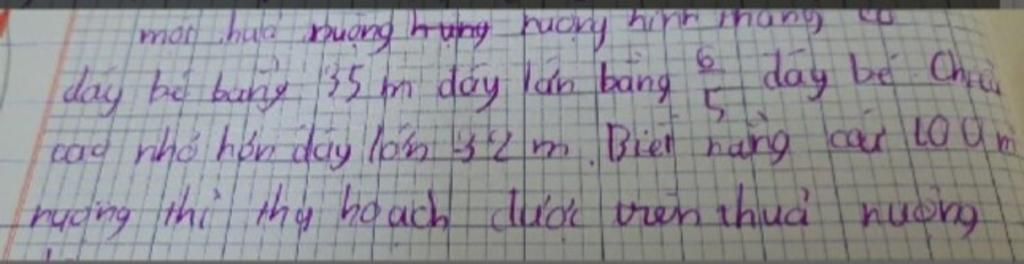 một thửa ruộng ruộng hình thang có
đáy bé bằng 35 m đáy lớn bằng 6/5 đáy bé. Chiều
cao nhỏ hơn đáy lớn 32 m. Biết rằng cái 100 m
ruộng thì thu hoạch được trên thuả ruộng